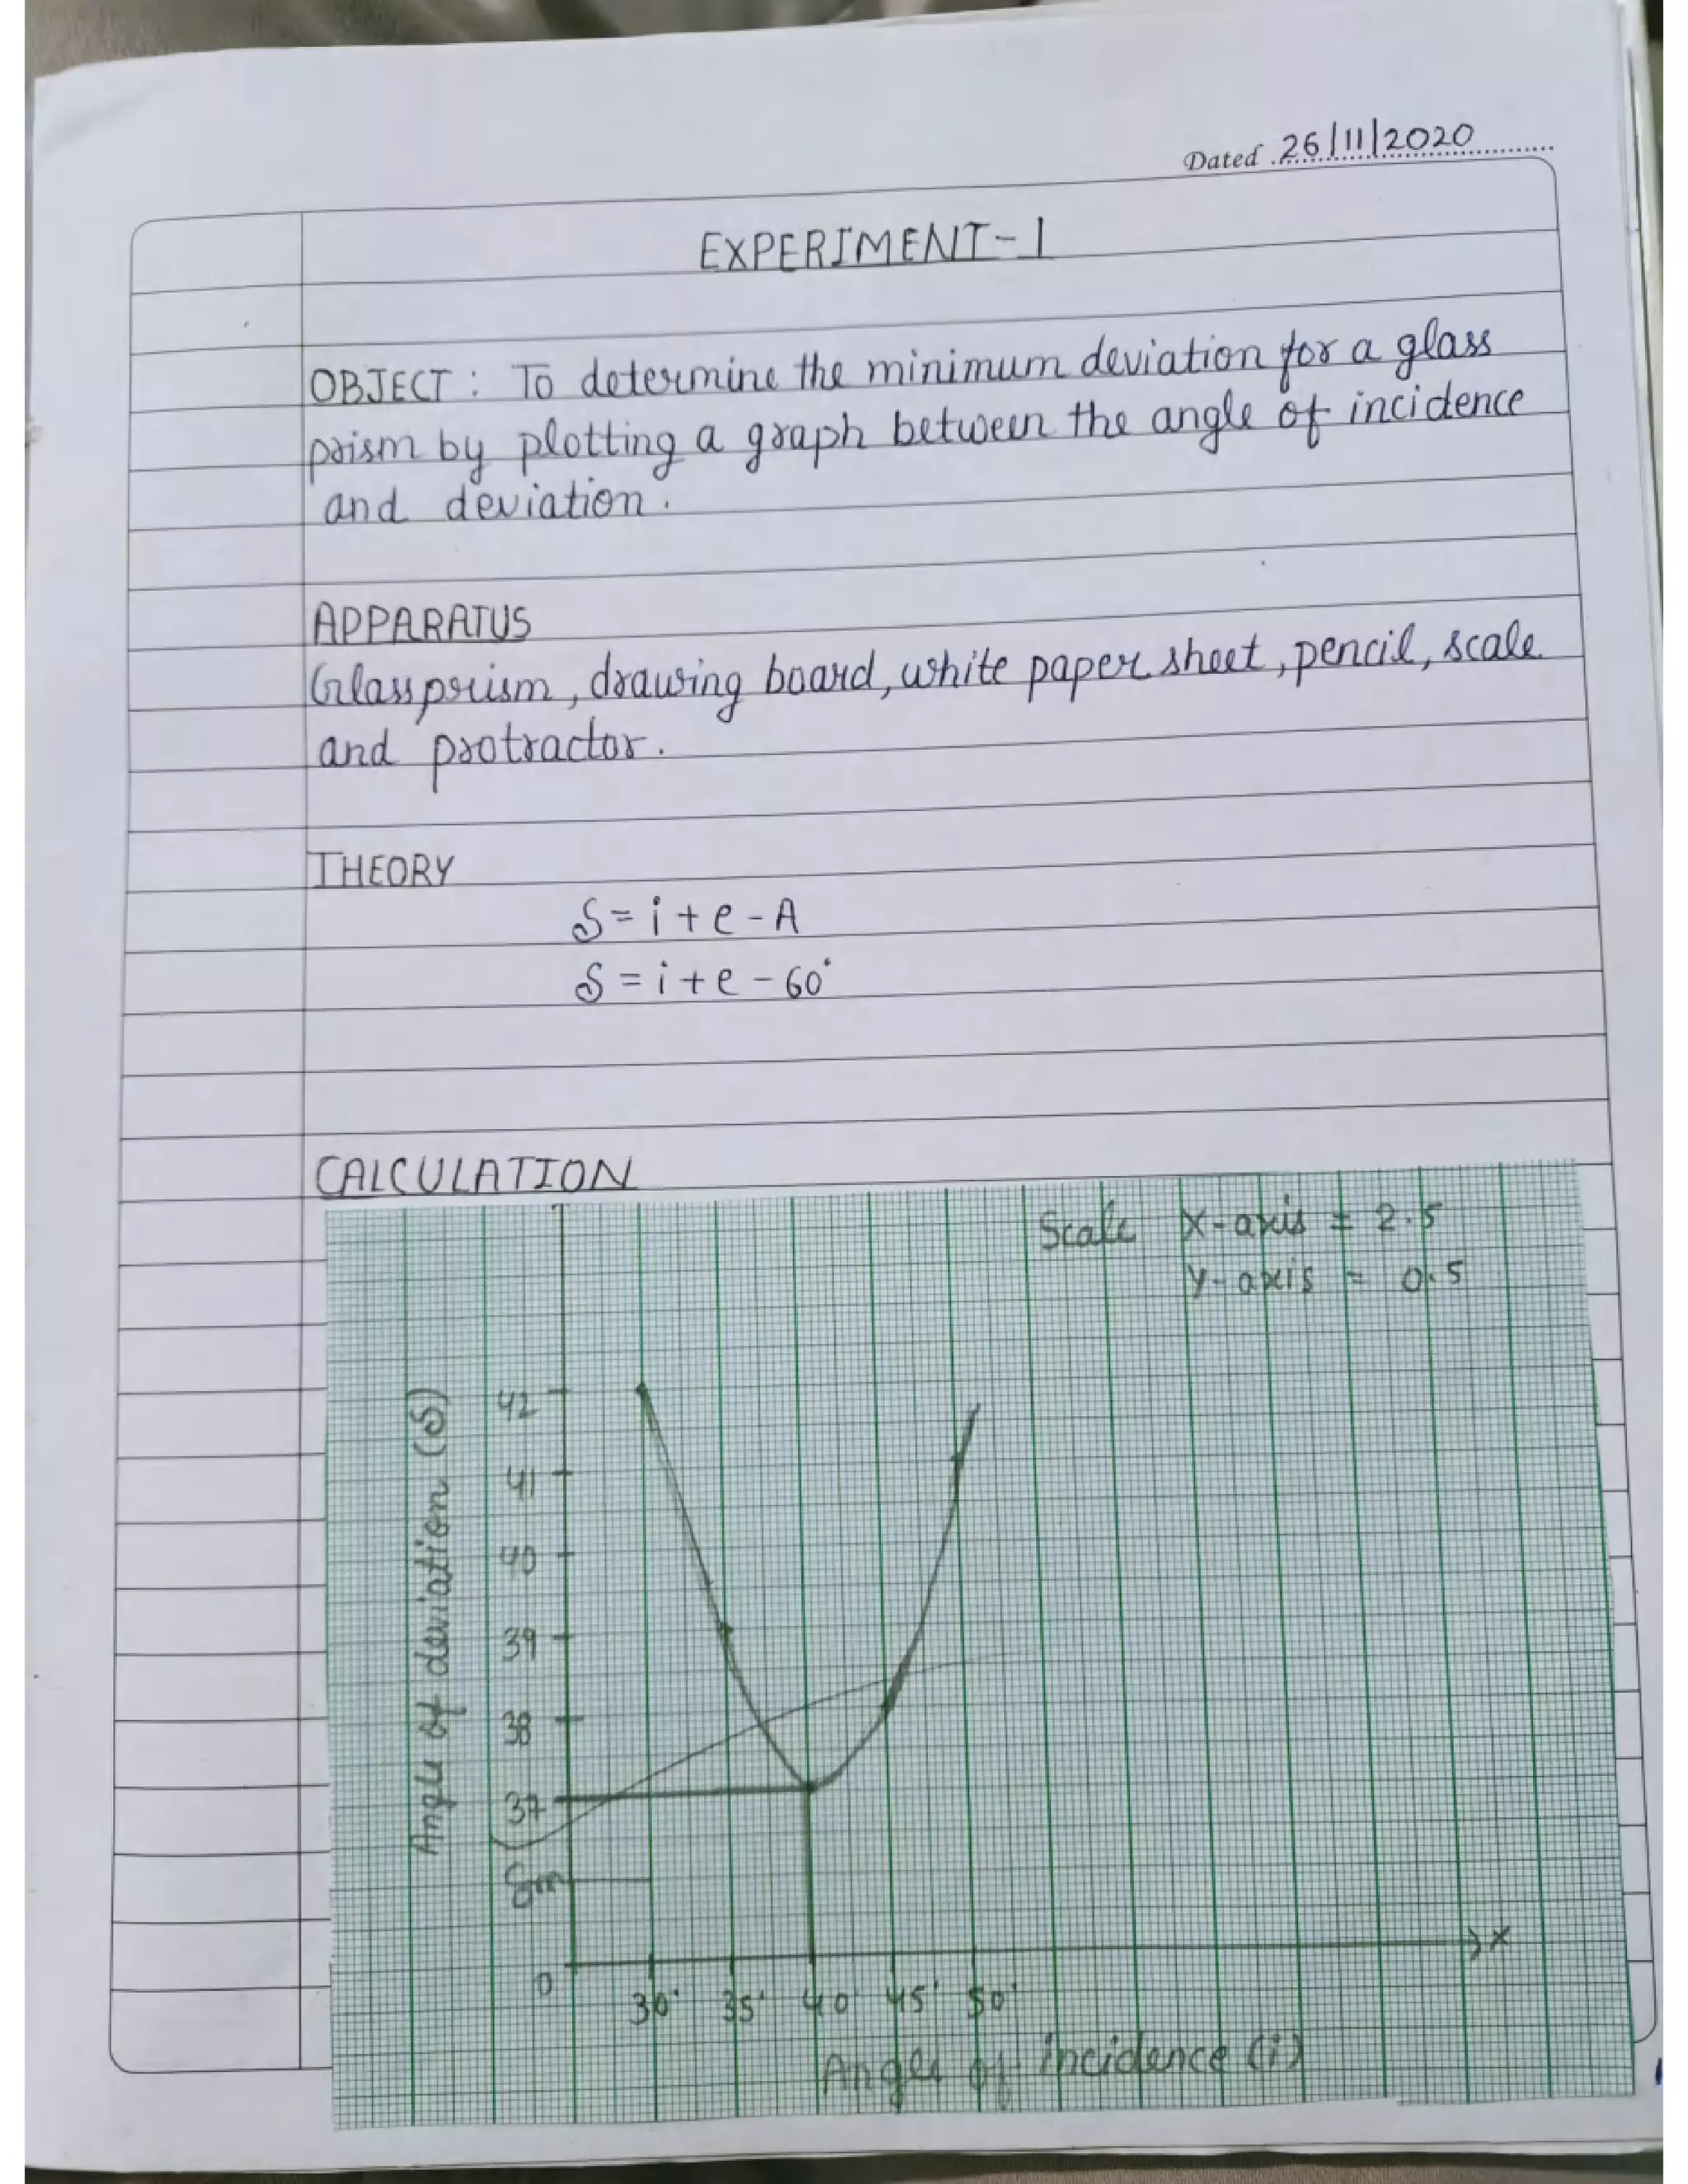 Dated 26/11/2020
EXPERIMENT-1
OBJECT : To determine the minimum deviation for a glass
prism by plotting a graph between the angle of incidence
and deviation.
APPARATUS
Glass prism, drawing board, white paper sheet, pencil, scale
and protractor.
THEORY
δ = i + e - A
δ = i + e - 60°
CALCULATION
Scale X-axis = 2.5
Y-axis = 0.5
Angle of deviation (δ)
42
41
40
39
38
37
δm
0
30° 35° 40° 45° 50°
X
Angle of incidence (i)